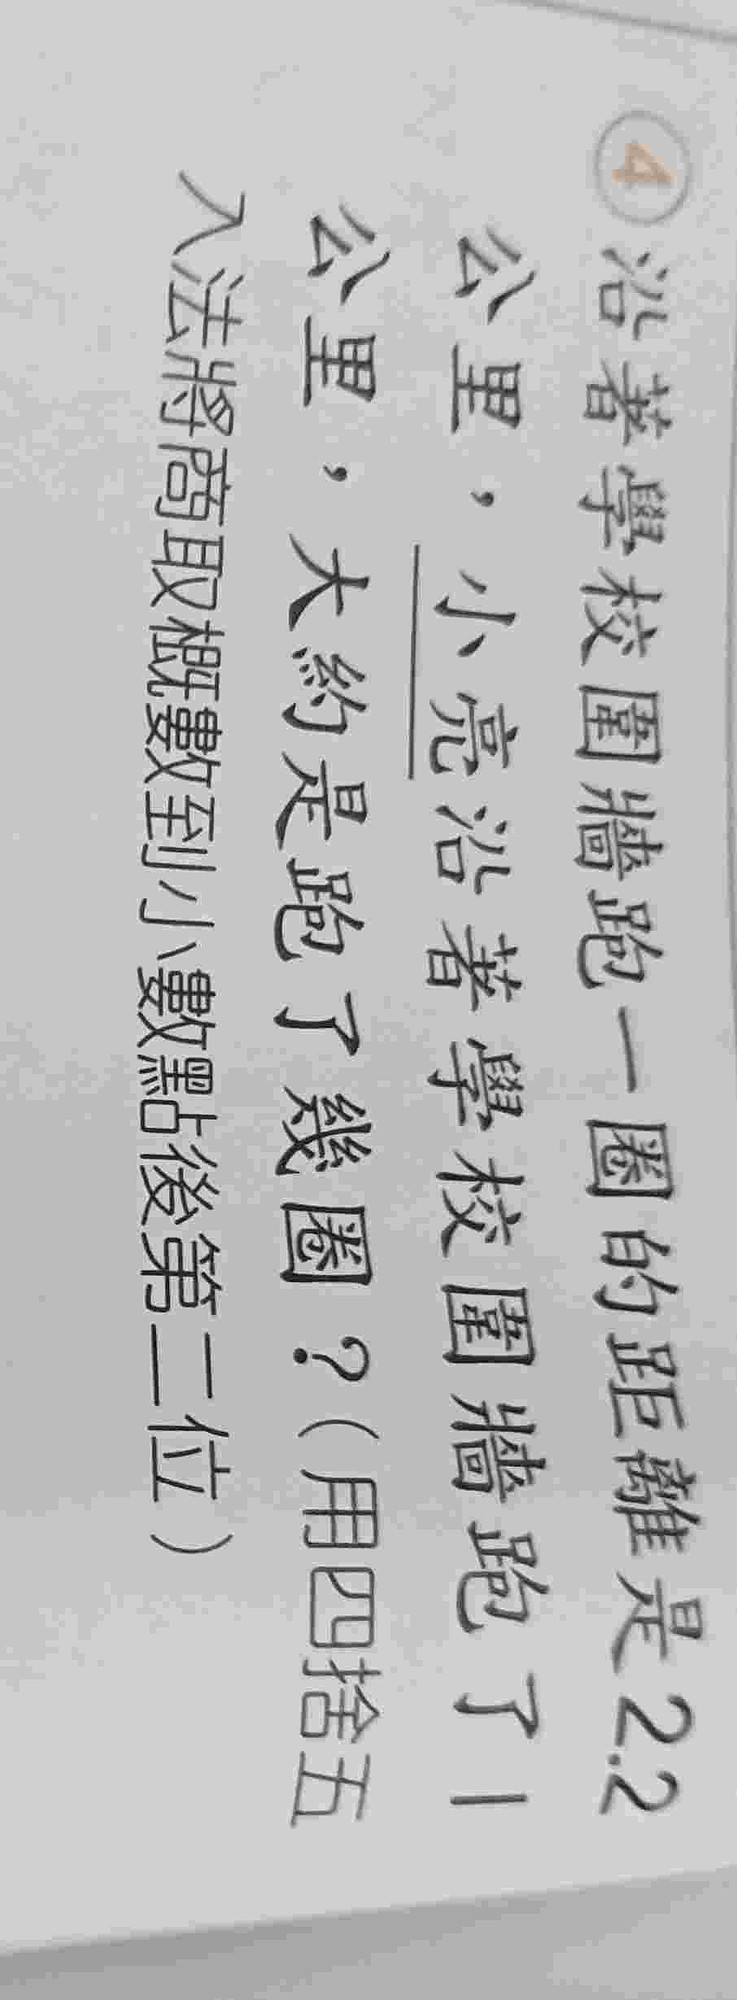 ④沿著學校圍牆跑一圈的距離是2.2
公里，小亮沿著學校圍牆跑了1
公里，大約是跑了幾圈？（用四捨五
入法將商取概數到小數點後第二位）